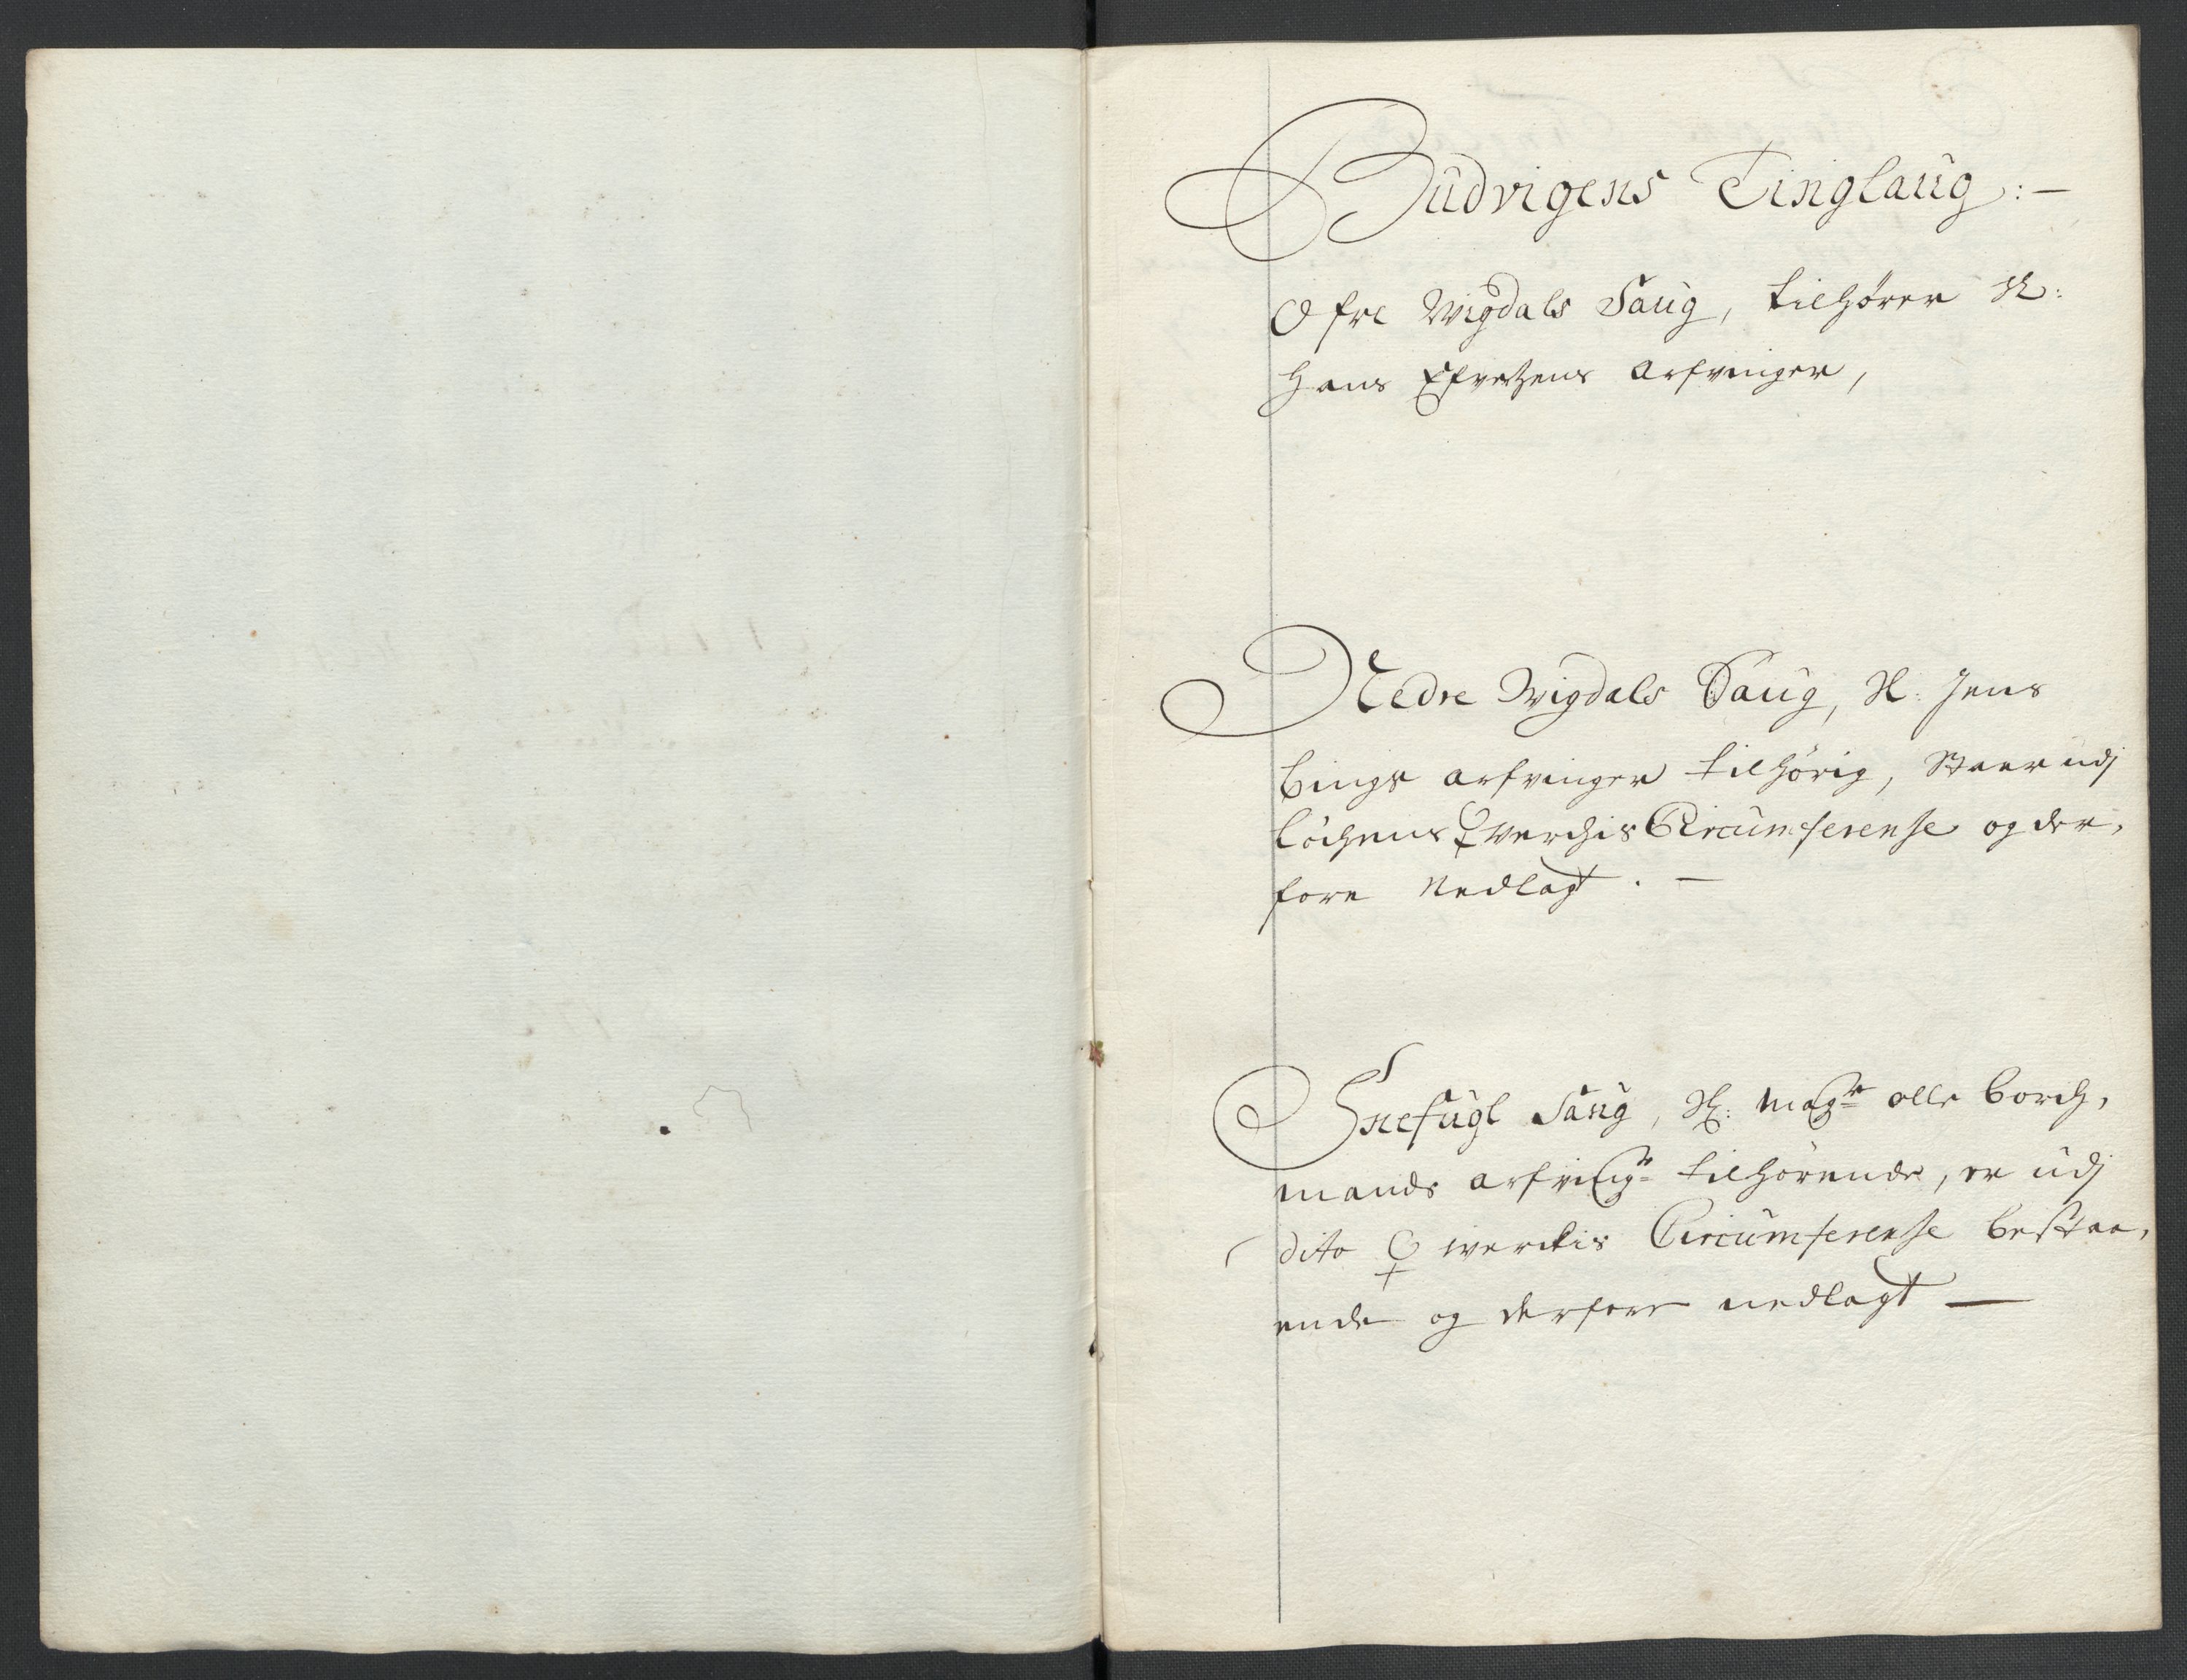 Budvigens Tinglaug:—
Øfre Wigdals Saug, tilhører Sl:
Hans Efvertsens arfvinger,
Nedre Wigdals Saug, Sl. Jens
bings arfvinger tilhørig, staar udj
Løchens ♀ Werchis Circumferense og der,
fore Nedlagt. —
Snefugl Saug, Sl: Magr olle borch,
mands arfvingr tilhørende, er udj
dito ♀ werckis Circumferense bestaa,
ende og derfore nedlagt —